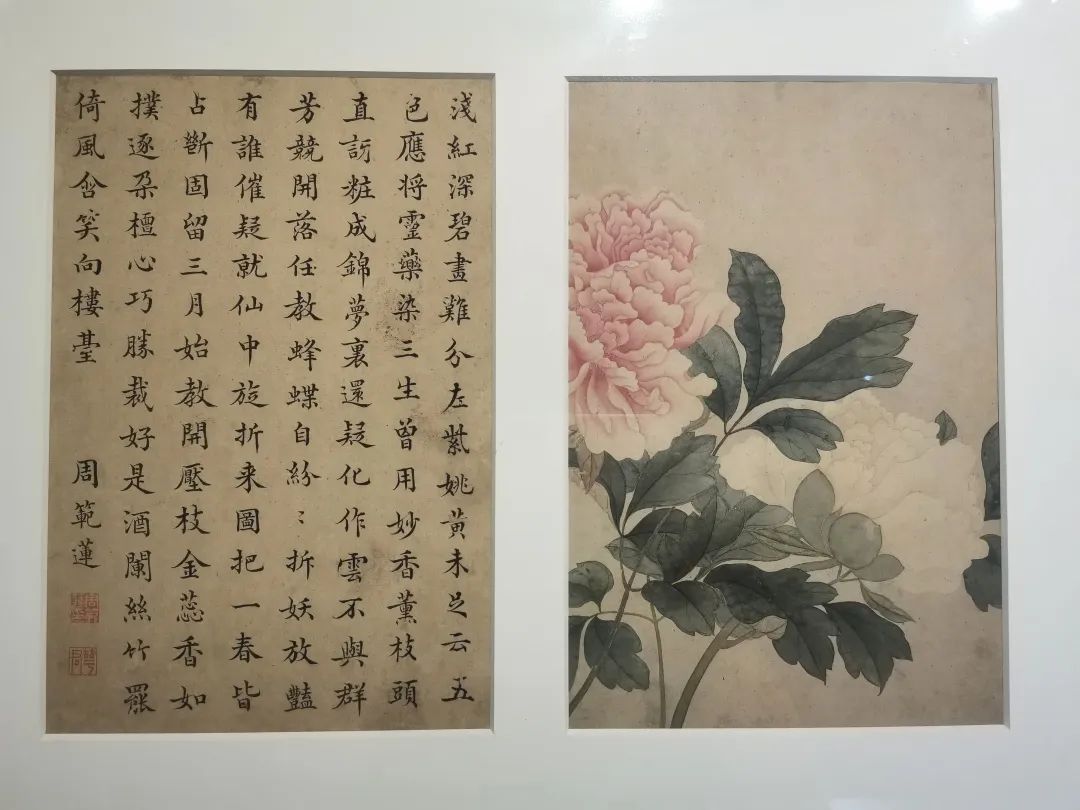 淺紅深碧畫難分左紫姚黃未足云五
色應将靈藥染三生曾用妙香薰枝頭
直訝粧成錦夢裏還疑化作雲不與群
芳競開落任教蜂蝶自紛〻拆妖放豔
有誰催疑就仙中旋折来圖把一春皆
占斷固留三月始教開壓枝金蕊香如
撲逐朶檀心巧勝裁好是酒闌絲竹罷
倚風含笑向樓臺
周範蓮